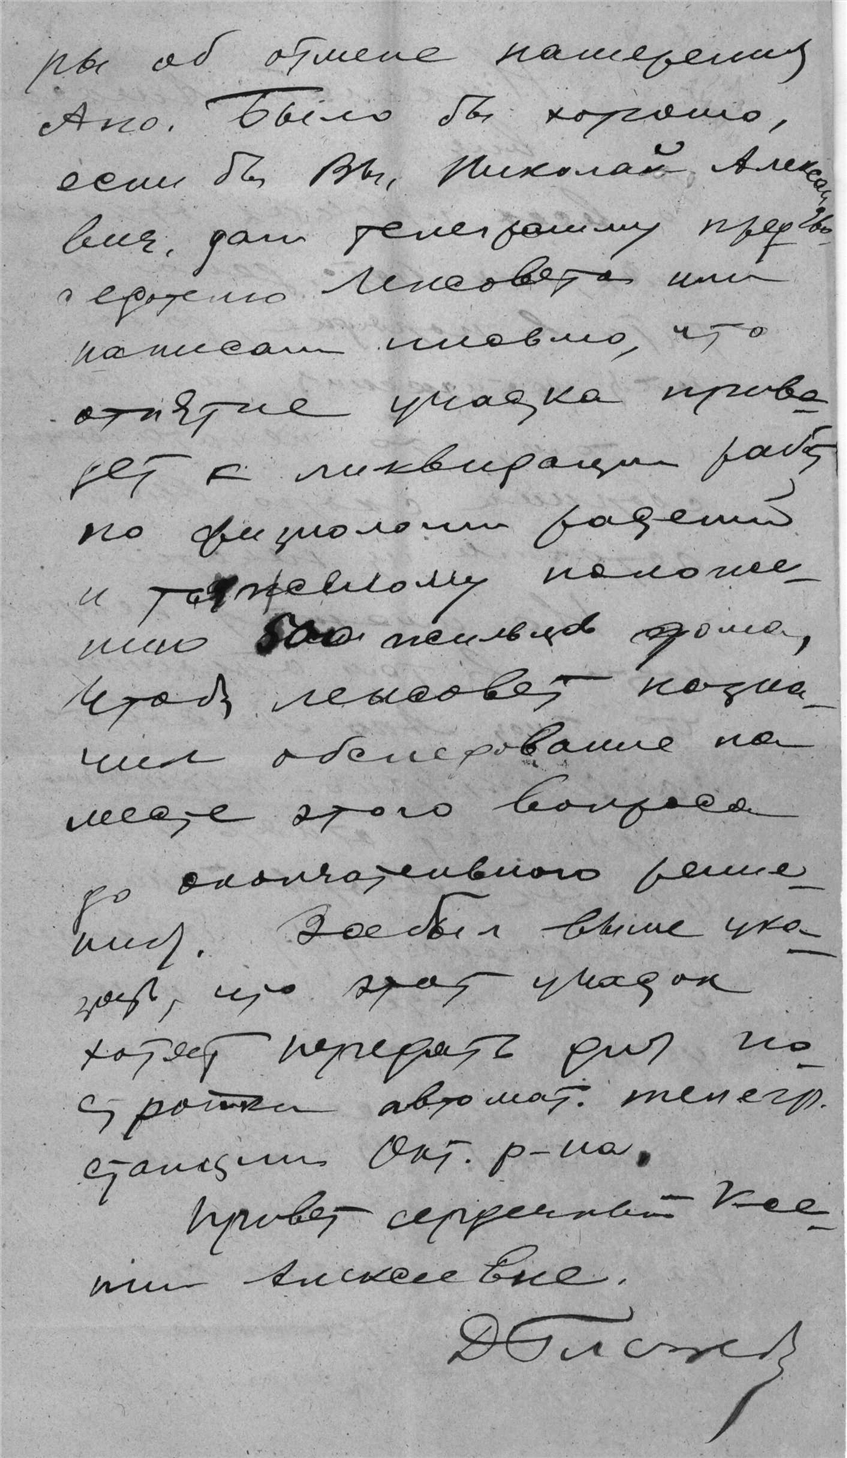 ры об отмене намерения
Апо. Было бы хорошо,
если бы Вы, Николай Александро-
вич, дали телеграмму пред-
седателю Ленсовета или
написали письмо, что
отнятие участка приве-
дет к ликвидации работ
по физиологии растений
и тяжелому положе-
нию 500 жильцов дома,
чтобы ленсовет назна-
чил обследование на
месте этого вопроса
до окончательного реше-
ния. Забыл выше ука-
зать, что этот участок
хотят передать для по-
стройки автомат. телегр.
станции Окт. р-на.
Привет сердечный Ксе-
нии Алексеевне.